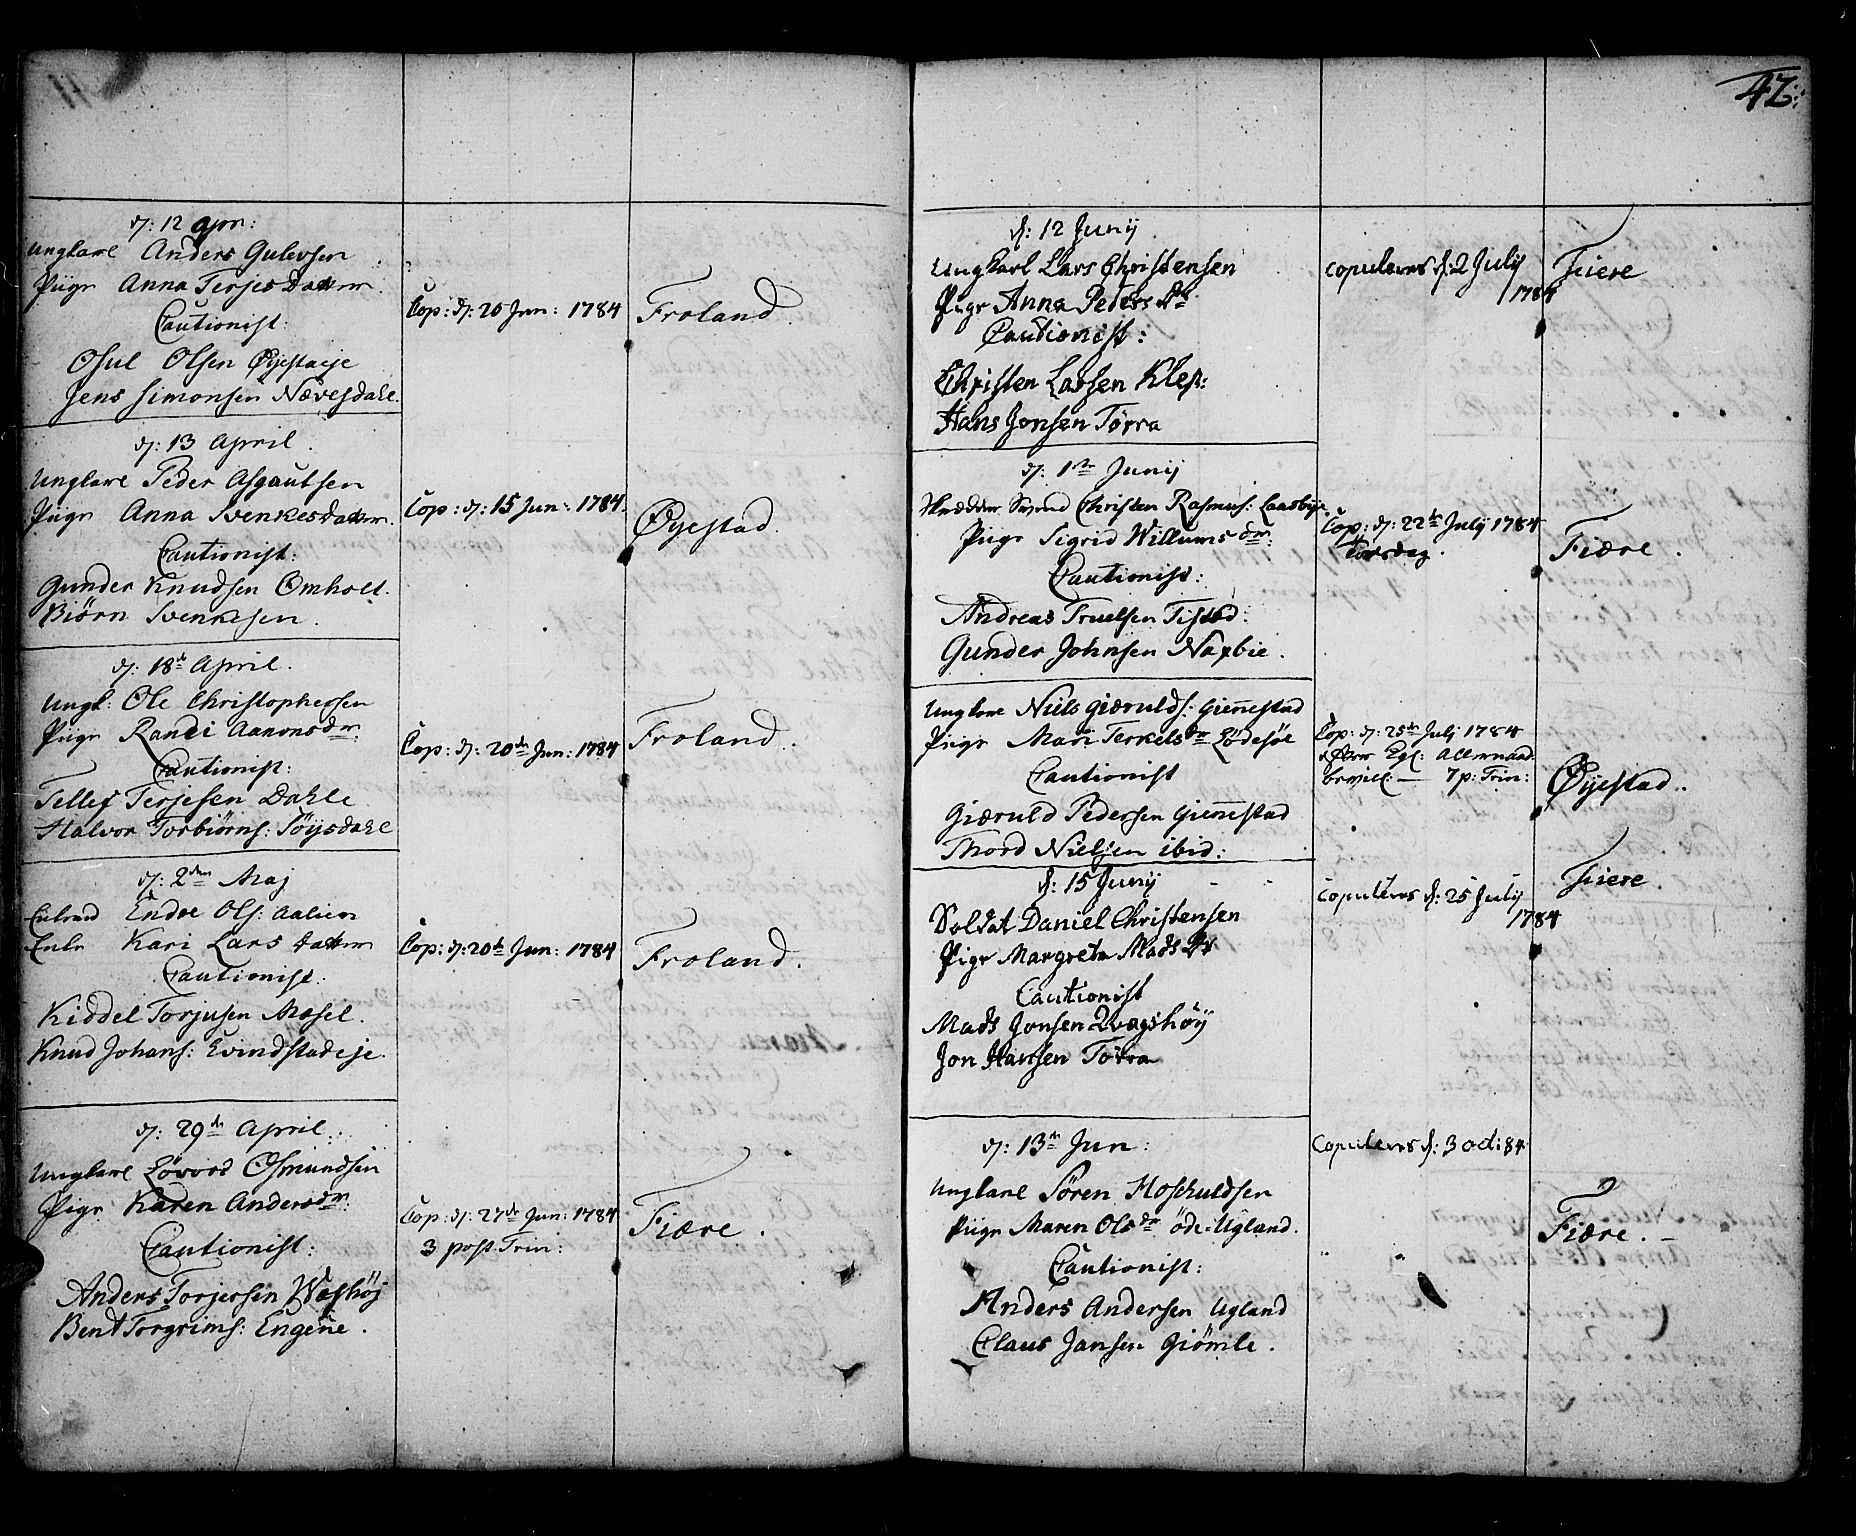 42.
d: 12 apr:
Ungkarl Anders Gulevsen
Pige Anna Terjesdatter.
Cautionist:
Osul Olsen Øyestaeje
Jens Simonsen Nævesdale.
Cop: d: 20 Jun: 1784
Froland.
d: 13 April.
Ungkarl Peder Asgautsen
Pige Anna Svenkesdatter.
Cautionist:
Gunder Knudsen Omholt.
Biörn Svenkesen.
Cop: d: 15 Jun: 1784.
Øyestad.
d: 18de April.
Ungk: Ole Christophersen
Pige Randi Aanonsdtr
Cautionist:
Tellef Terjesen Dahle
Halvor Torbiörns: Söijsdale
Cop: d: 20de Jun: 1784
Froland.
d: 2den Maj
Enkemd Endre Ols:
Enke Kari Larsdatter
Cautionist.
Kiddel Torjusen Mosel.
Knud Johans: Evindstadeje.
Cop: d: 20de Jun: 1784
Froland.
d: 29de April.
Ungkarl Lövord Osmundsen
Pige Karen Andersdtr.
Cautionist:
Anders Torjersen Washöj
Bent Torgrims: Engene.
Cop: d: 27de Jun: 1784
3 post Trin:
Fiære.
d: 12 Junij
Ungkarl Lars Christensen
Pige Anna Peders Dtr
Cautionist:
Christen Larsen Klep:
Hans Jonsen Tørra
copuleres d: 2 Julij
1784
Fiere
d: 1ste Junij
Christen Rasmus:
Pige Sigrid Willumsdtr:
Cautionist:
Andreas Truelsen Tistad:
Gunder Johnsen Naxbie.
Cop: d: 22de Julij 1784
Torsdag.
Fiære.
Ungkarl Niels Giærulds: Giennestad
Pige Mari Terkelsdtr Lödesöl
Cautionist
Giæruld Pedersen Giennestad
Thord Nielsen ibid:
Cop: d: 25de Julij 1784
7 p: Trin:
Øyestad.
d: 15 Junij
Soldat Daniel Christensen
Pige Margrete Mads Dtr
Cautionist
Mads Jonsen Qvagshøij
Jon Hansen Tørra
copuleres d: 25 Julij
1784
Fiere.
d: 13de Jun:
Ungkarl Sören Hoskuldsen
Pige Maren Olsdtr öde-Ugland.
Cautionist:
Anders Andersen Ugland
Claus Jansen Giömle.
copuleres d: 3 oct: 84
Fiære.